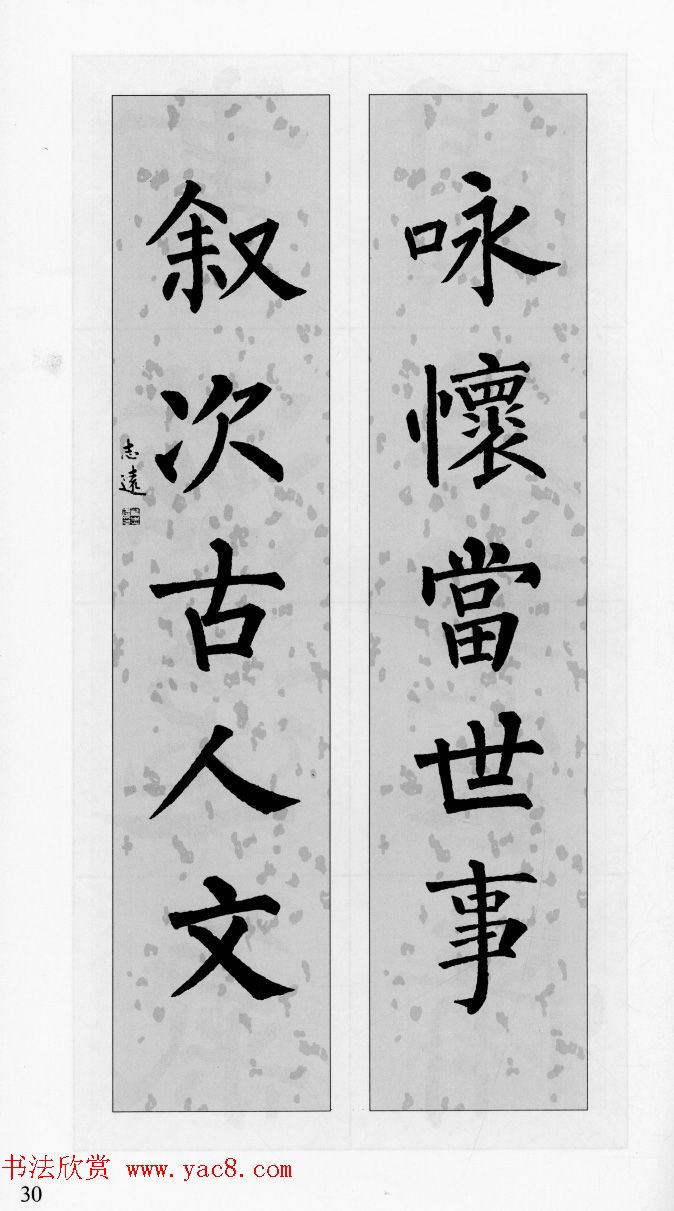 咏懷當世事
叙次古人文
志遠
书法欣赏 www.yac8.com
30